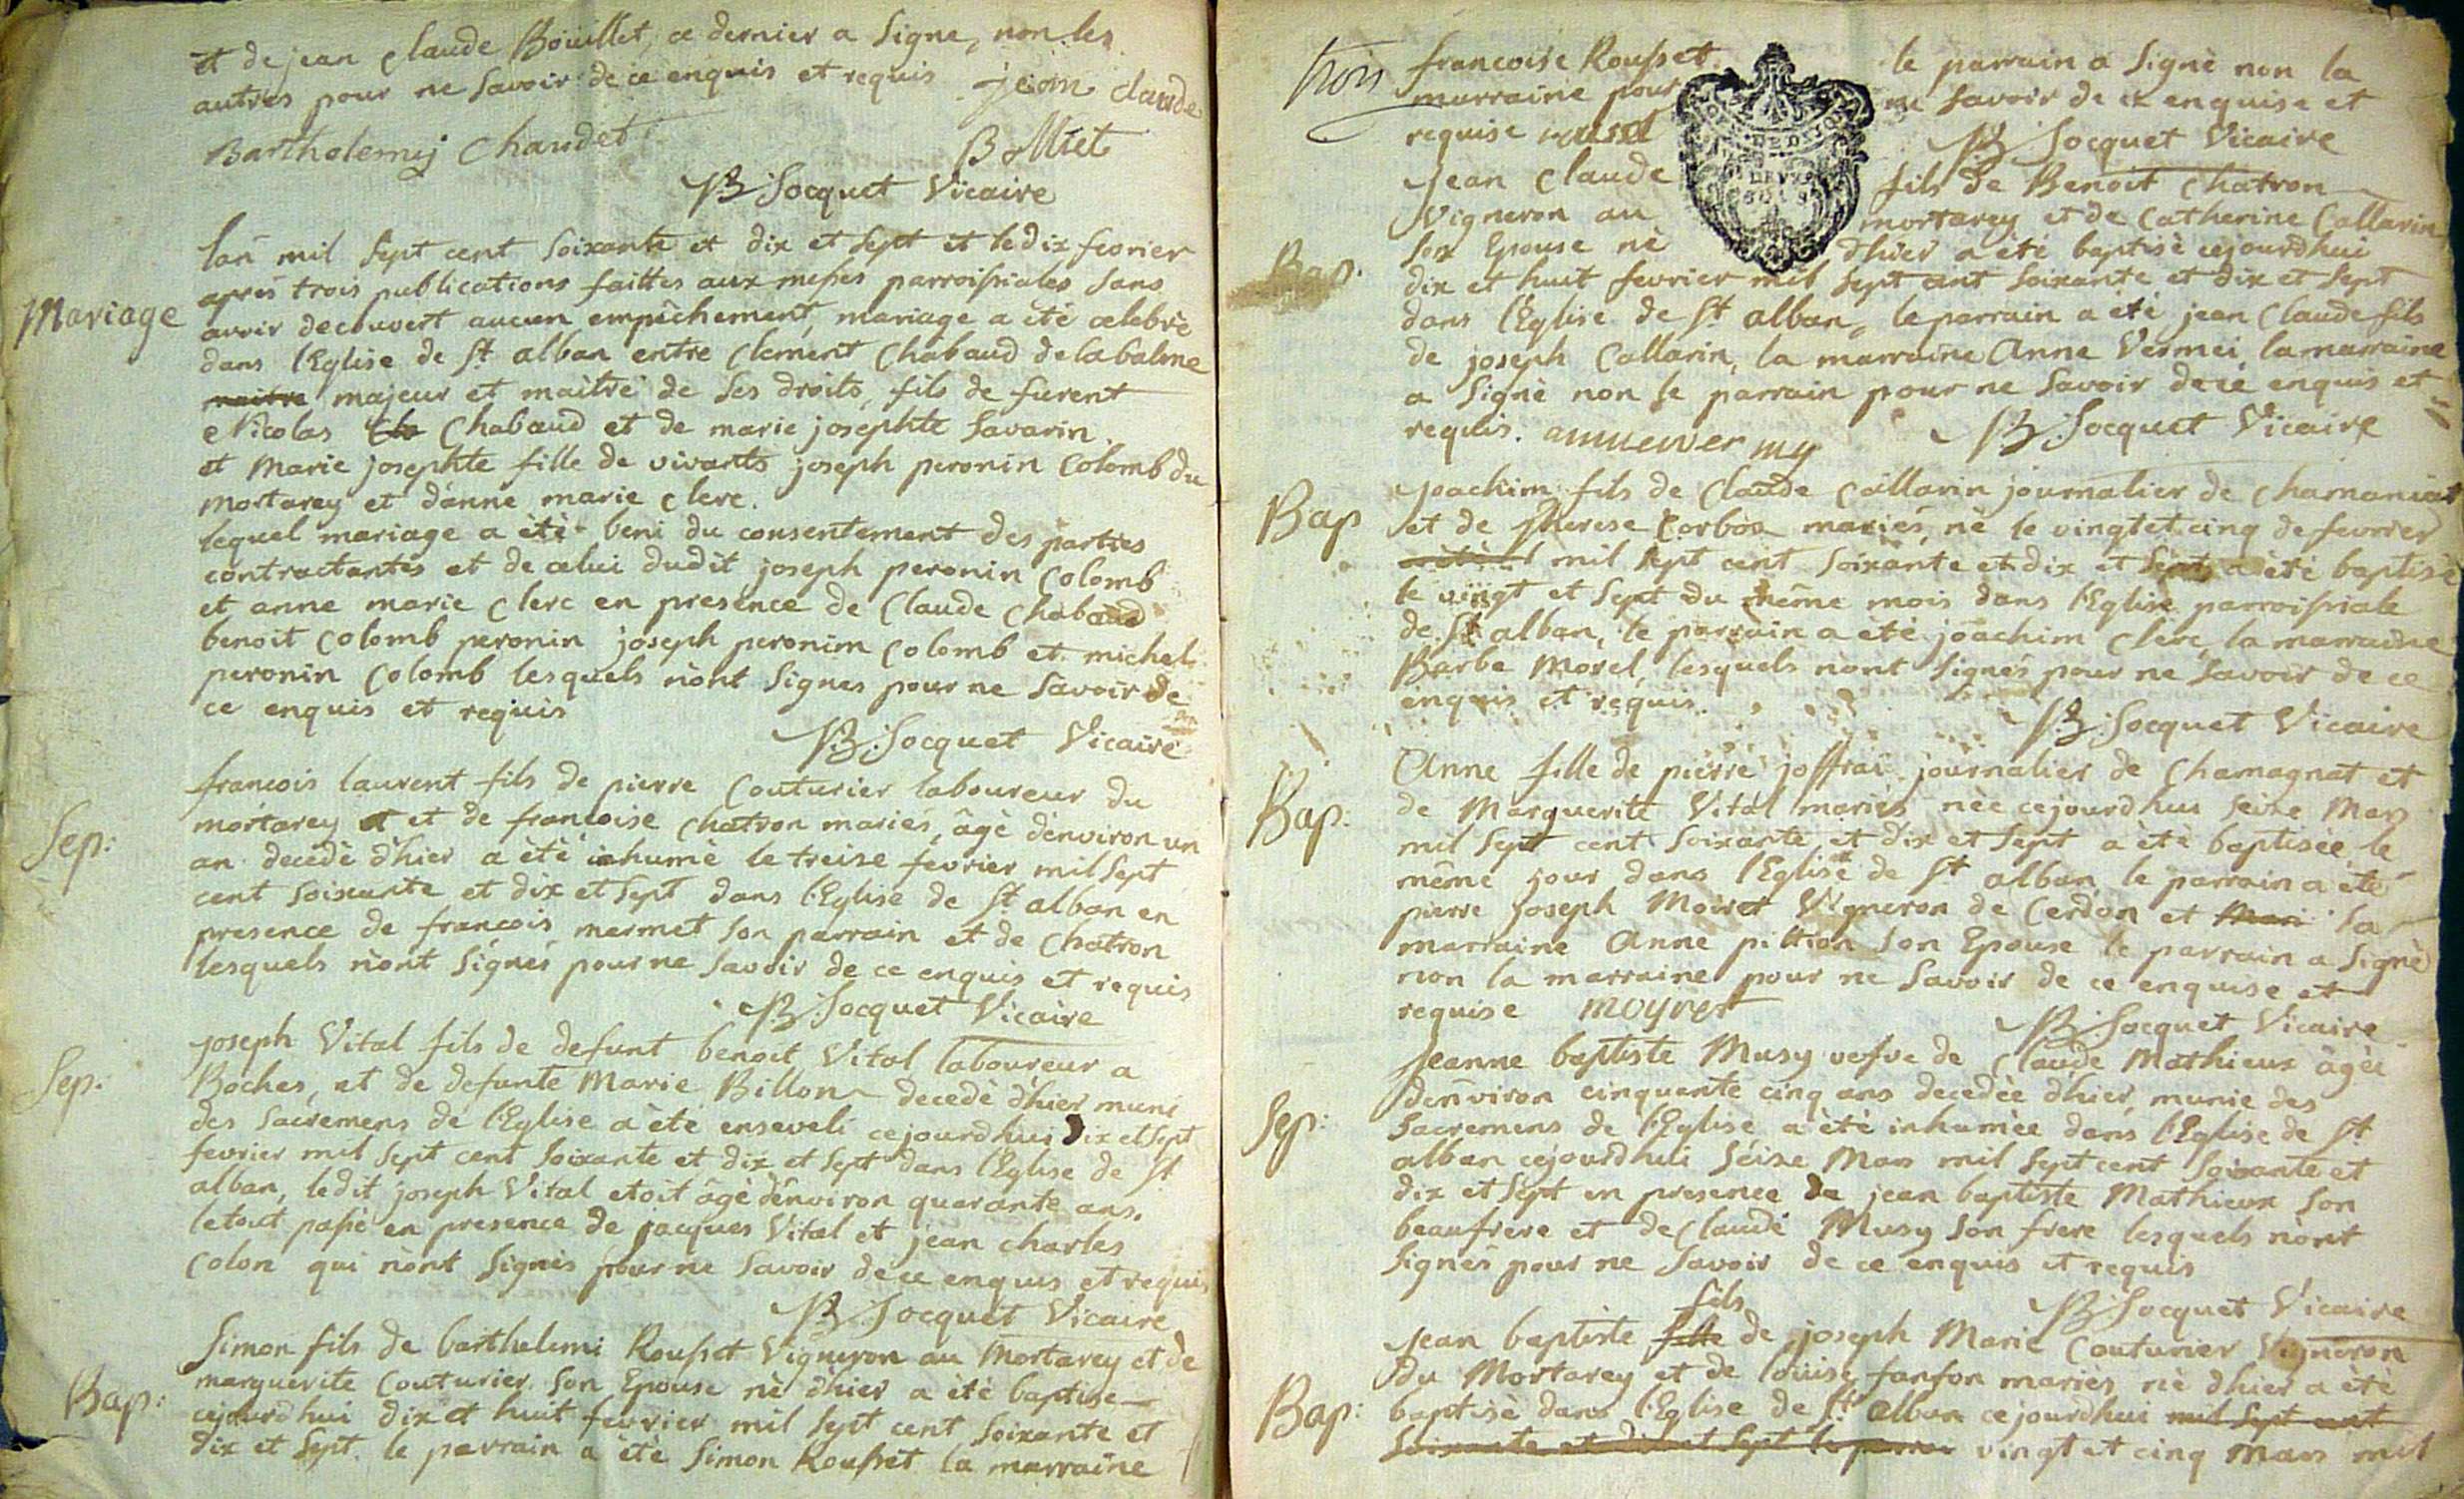 et de jean Claude Bouillet, ce dernier a signe, non les
autres pour ne savoir de ce enquis et requis jean claude
Bartholemij Chaudet Bolliet
B: Socquet Vicaire
Mariage
lan mil sept cent soixante et dix et sept et le dix fevrier
apres trois publications faittes aux messes parroissiales sans
avoir decouvert aucun empêchement, mariage a été celebré
dans l'Eglise de St alban entre Clement Chabaud de la balme
maitre majeur et maitre de ses droits, fils de furent
Nicolas Chabaud et de marie josephte Savarin.
et Marie josephte fille de vivants joseph peronin Colomb du
mortarey et d'anne marie Clerc.
lequel mariage a été beni du consentement des parties
contractantes et de celui dudit joseph peronin Colomb
et anne marie Clerc en presence de Claude Chabaud
benoit Colomb peronin joseph peronim Colomb et michel
peronin Colomb lesquels n'ont signes pour ne savoir de
ce enquis et requis
B: Socquet Vicaire
Sep:
francois laurent fils de pierre Couturier laboureur du
mortarey et et de francoise Chatron mariés, âgé d'environ un
an decedé d'hier a été inhumé le treize fevrier mil sept
cent soixante et dix et sept dans l'Eglise de St alban en
presence de francois mermet son parrain et de Chatron
lesquels n'ont signés pour ne savoir de ce enquis et requis
B: Socquet Vicaire
Sep:
joseph Vital fils de defunt benoit Vital laboureur a
Boches, et de defunte Marie Billon decedé d'hier muni
des sacremens de l'Eglise a été enseveli cejourdhui dix et sept
fevrier mil sept cent soixante et dix et sept dans l'Eglise de St
alban, ledit joseph Vital etoit âgé d'environ quarante ans.
le tout passé en presence de jacques Vital et jean charles
Colon qui n'ont signés pour ne savoir de ce enquis et requis
B: Socquet Vicaire
Bap:
Simon fils de barthelemi Rousset Vigneron au Mortarey et de
marguerite Couturier son Epouse né d'hier a été baptise
cejourdhui dix et huit fevrier mil sept cent soixante et
dix et sept. le parrain a été Simon Rousset la marraine
trois
francoise Rousset. le parrain a signé non la
marraine pour ne savoir de ce enquise et
requise
B: Socquet Vicaire
Bap:
Jean Claude fils de Benoit Chatron
Vigneron au mortarey et de Catherine Callarin
son Epouse né d'hier a été baptisé cejourdhui
dix et huit fevrier mil sept cent soixante et dix et sept
dans l'Eglise de St alban, le parrain a été jean Claude fils
de joseph Callarin, la marraine Anne Vermei, la marraine
a signé non le parrain pour ne savoir de ce enquis et
requis. B: Socquet Vicaire
Bap
Joachim fils de Claude Callarin journalier de Chamaniat
et de Therese Corbos mariés, né le vingt et cinq de fevrier
mil sept cent soixante et dix et sept, a été baptisé
le vingt et sept du même mois dans l'Eglise parroissiale
de St alban, le parrain a été joachim Clerc, la marraine
Barbe Morel, lesquels n'ont signés pour ne savoir de ce
enquis et requis.
B: Socquet Vicaire
Bap:
Anne fille de pierre joffrai journalier de Chamagnat et
de Marguerite Vital mariés née cejourdhui seize Mars
mil sept cent soixante et dix et sept a été baptisée le
même jour dans l'Eglise de St alban le parrain a été
pierre Joseph Moiret Vigneron de Cerdon et Mari la
marraine Anne pittion son Epouse le parrain a signé
non la marraine pour ne savoir de ce enquise et
requise moyret
B: Socquet Vicaire
Sep:
Jeanne baptiste Musy vefve de Claude Mathieux âgée
d'environ cinquante cinq ans decedée d'hier, munie des
sacremens de l'Eglise a été inhumée dans l'Eglise de St
alban cejourdhui séize Mars mil sept cent soixante et
dix et sept en presence de jean baptiste Mathieux son
beaufrere et de Claude Musy son frere lesquels n'ont
signés pour ne savoir de ce enquis et requis
B: Socquet Vicaire
Bap:
fils
Jean baptiste fille de joseph Marie Couturier Vigneron
du Mortarey et de louise fanfon mariés né d'hier a été
baptisé dans l'Eglise de St Alban cejourdhui mil sept cent
soixante et dix et sept le parrai vingt et cinq Mars mil